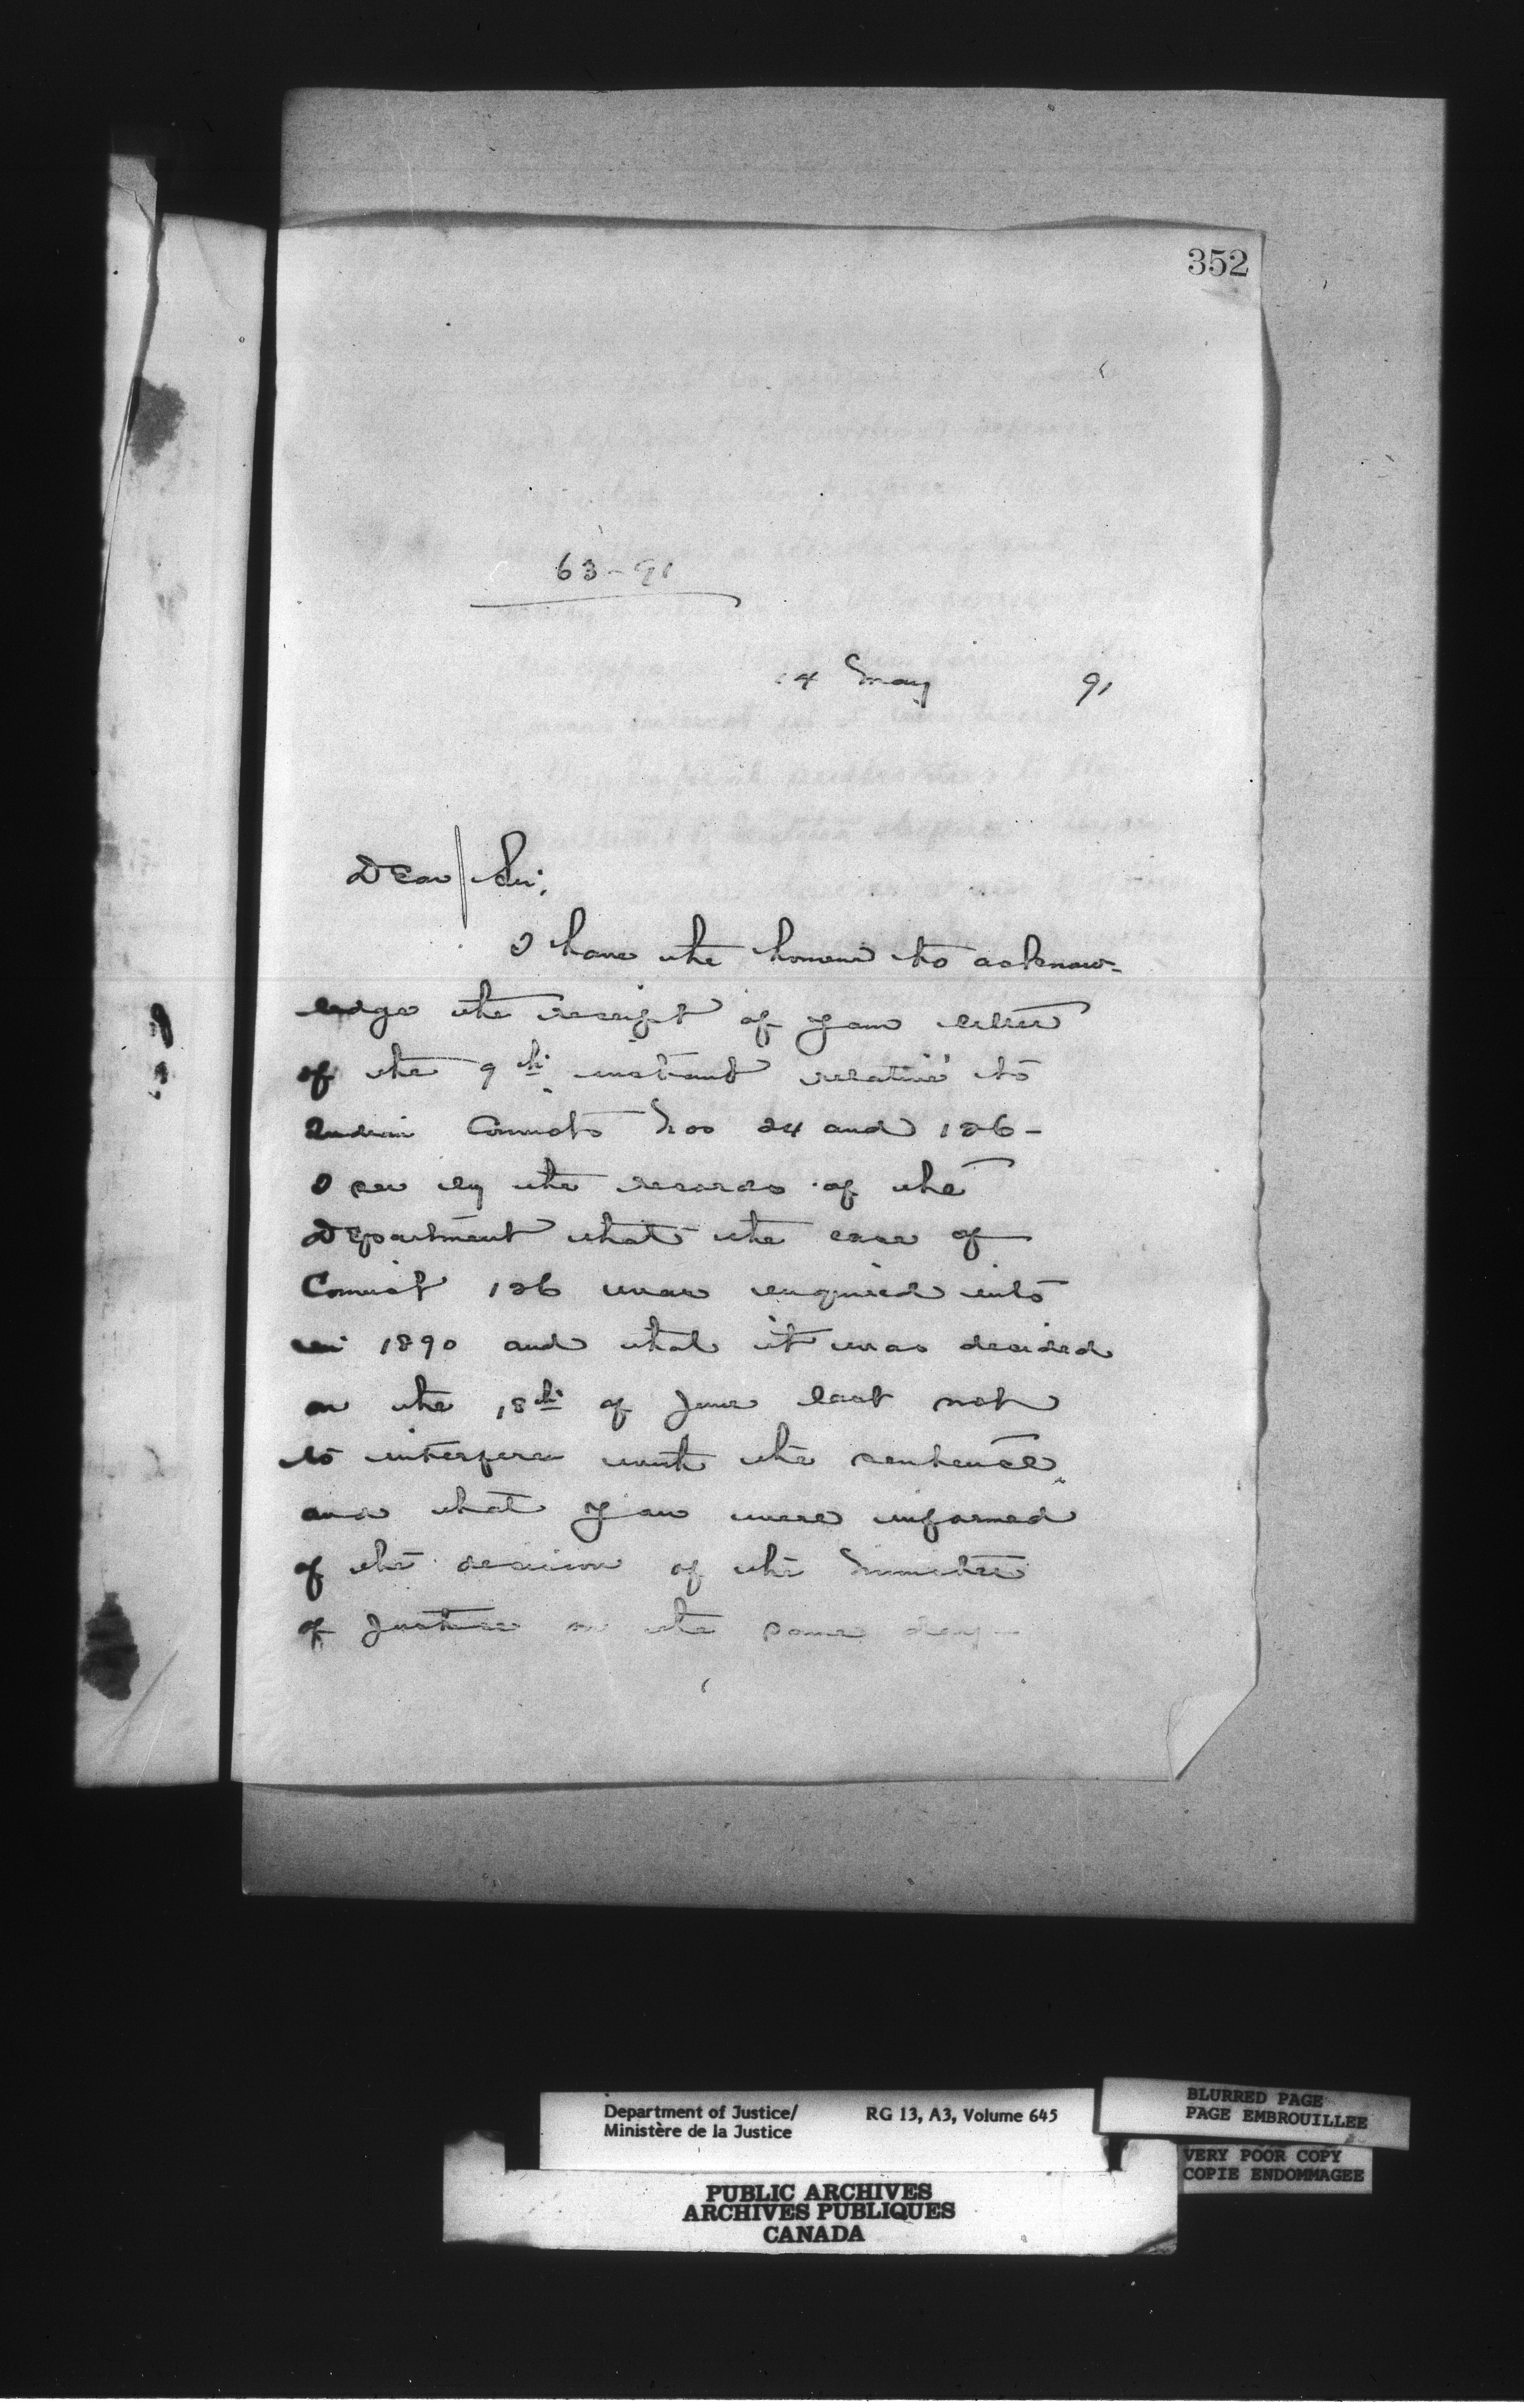 352
63-91
14 May 91
Dear Sir,
I have the honour to acknow-
ledge the receipt of your letter
of the 9th instant relative to
Indian Convicts Nos 24 and 126-
I see by the records of the
Department that the case of
Convict 126 was enquired into
in 1890 and that it was decided
on the 18th of June last not
to interfere with the sentence
and that you were informed
of the decision of the Minister
of Justice on the same day-
Department of Justice/ RG 13, A3, Volume 645
Ministère de la Justice
BLURRED PAGE
PAGE EMBROUILLEE
VERY POOR COPY
COPIE ENDOMMAGEE
PUBLIC ARCHIVES
ARCHIVES PUBLIQUES
CANADA